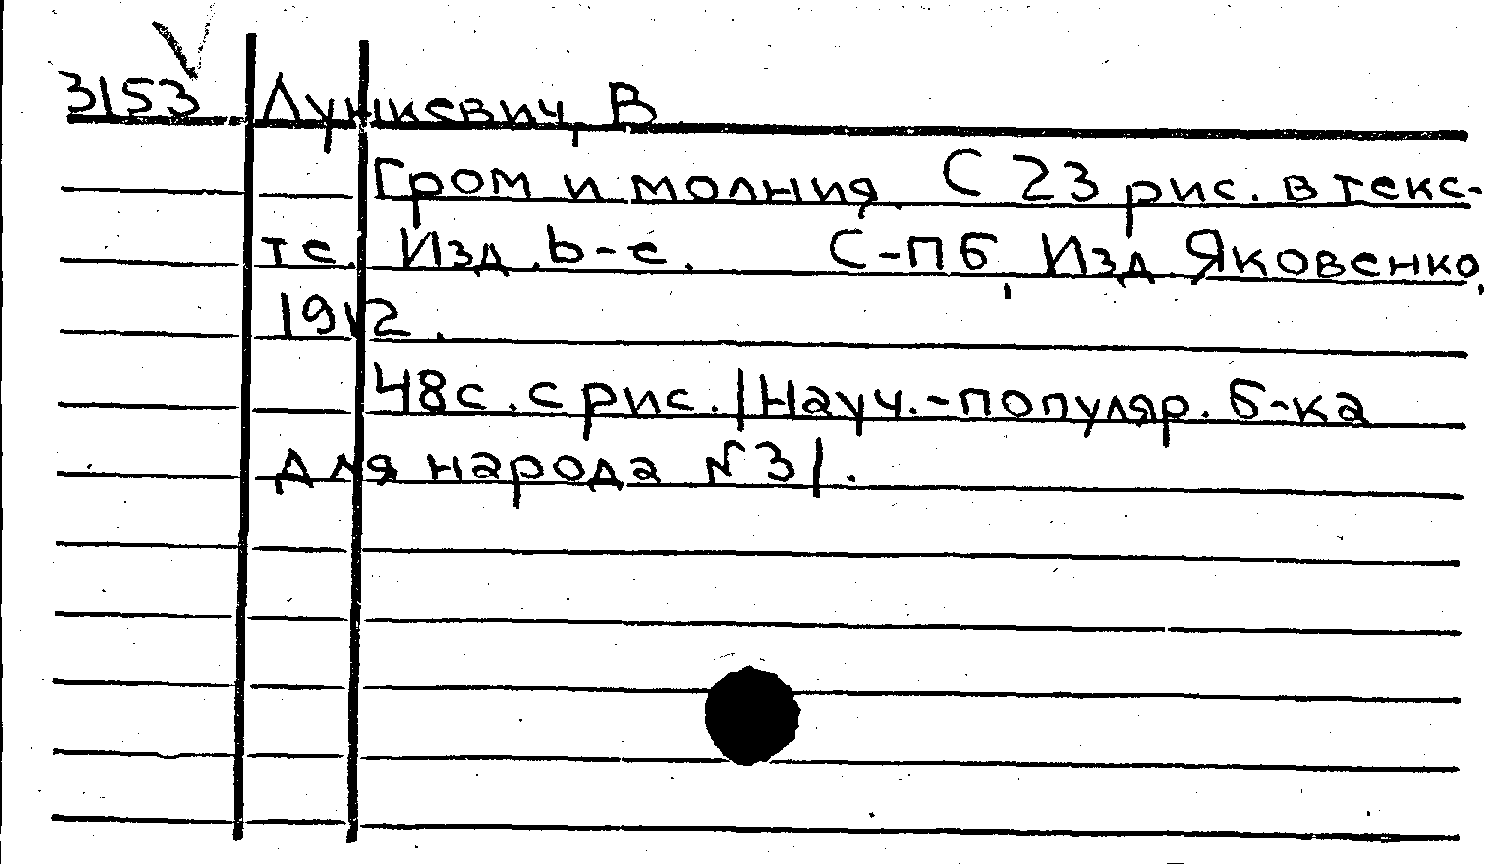 3153 Лункевич, В
Гром и молния. С 23 рис. в текс-
те. Изд. 6-е. С-ПБ, Изд. Яковенко,
1912.
48с. с рис. /Науч.-популяр. б-ка
для народа N3/.